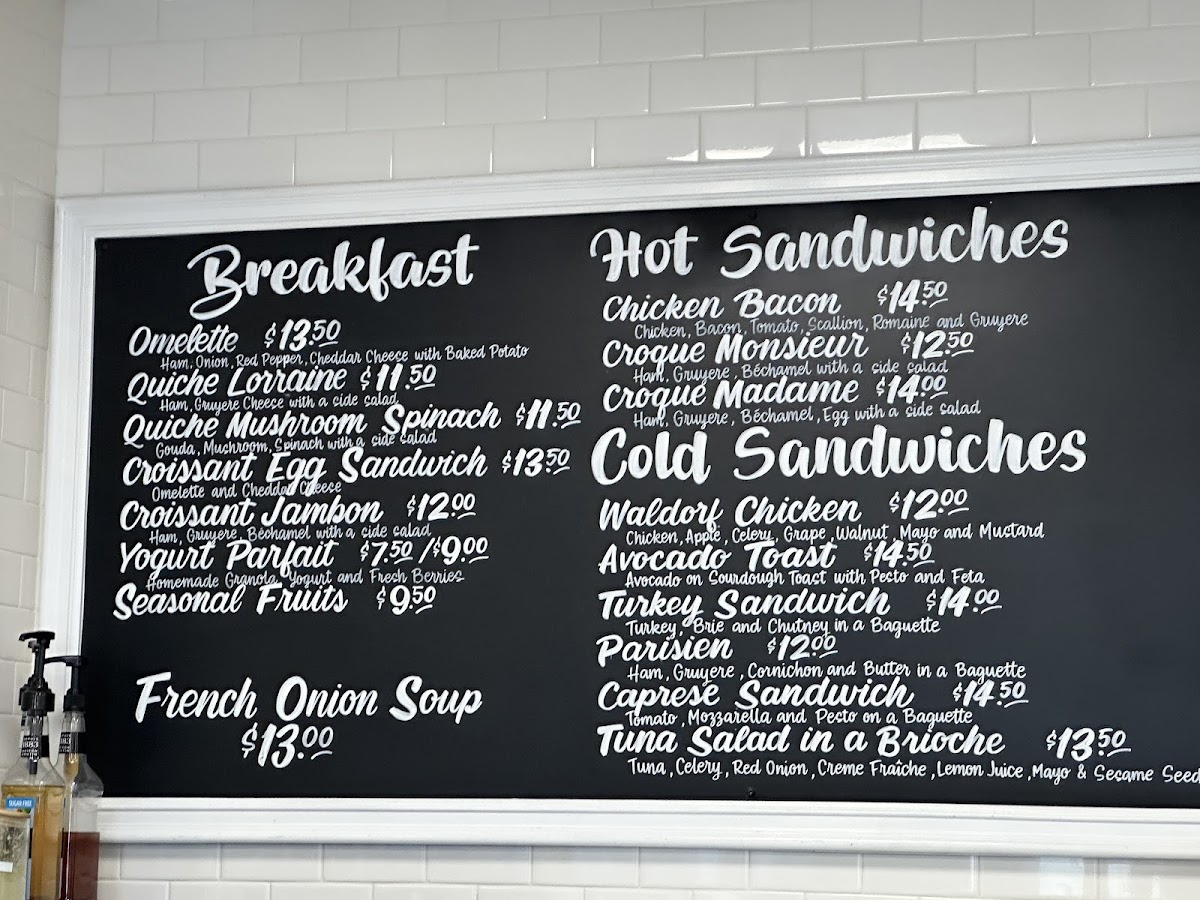 Breakfast
Omelette $13.50
Ham, Onion, Red Pepper, Cheddar Cheese with Baked Potato
Quiche Lorraine $11.50
Ham, Gruyere Cheese with a side salad
Quiche Mushroom Spinach $11.50
Gouda, Muchroom, Spinach with a side salad
Croissant Egg Sandwich $13.50
Omelette and Cheddar Cheese
Croissant Jambon $12.00
Ham, Gruyere, Béchamel with a side salad
Yogurt Parfait $7.50 / $9.00
Homemade Granola, Yogurt and Fresh Berries
Seasonal Fruits $9.50
French Onion Soup
$13.00
Hot Sandwiches
Chicken Bacon $14.50
Chicken, Bacon, Tomato, Scallion, Romaine and Gruyere
Croque Monsieur $12.50
Ham, Gruyere, Béchamel with a side salad
Croque Madame $14.00
Ham, Gruyere, Béchamel, Egg with a side salad
Cold Sandwiches
Waldorf Chicken $12.00
Chicken, Apple, Celery, Grape, Walnut, Mayo and Mustard
Avocado Toast $14.50
Avocado on Sourdough Toast with Pesto and Feta
Turkey Sandwich $14.00
Turkey, Brie and Chutney in a Baguette
Parisien $12.00
Ham, Gruyere, Cornichon and Butter in a Baguette
Caprese Sandwich $14.50
Tomato, Mozzarella and Pesto on a Baguette
Tuna Salad in a Brioche $13.50
Tuna, Celery, Red Onion, Creme Fraîche, Lemon Juice, Mayo & Secame Seed
1883
SUGAR FREE